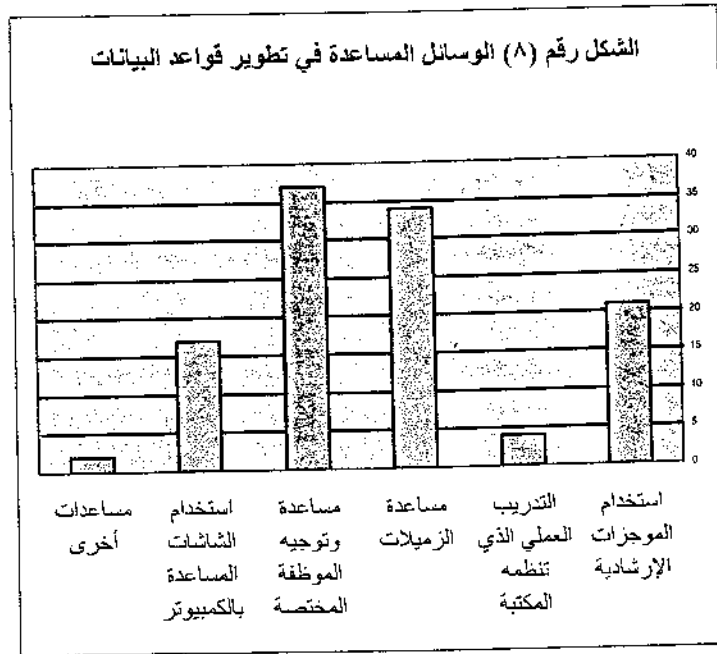 الشكل رقم (٨) الوسائل المساعدة في تطوير قواعد البيانات
40
35
30
25
20
15
10
5
0
استخدام
الموجزات
الإرشادية
التدريب
العملي الذي
تنظمه
المكتبة
مساعدة
الزميلات
مساعدة
وتوجيه
الموظفة
المختصة
استخدام
الشاشات
المساعدة
بالكمبيوتر
مساعدات
أخرى